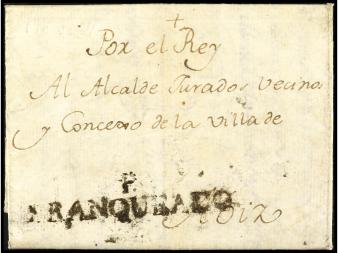 +
Por el Rey
Al Alcalde Jurados vecinos
y Concexo de la villa de
P
FRANQUEADO